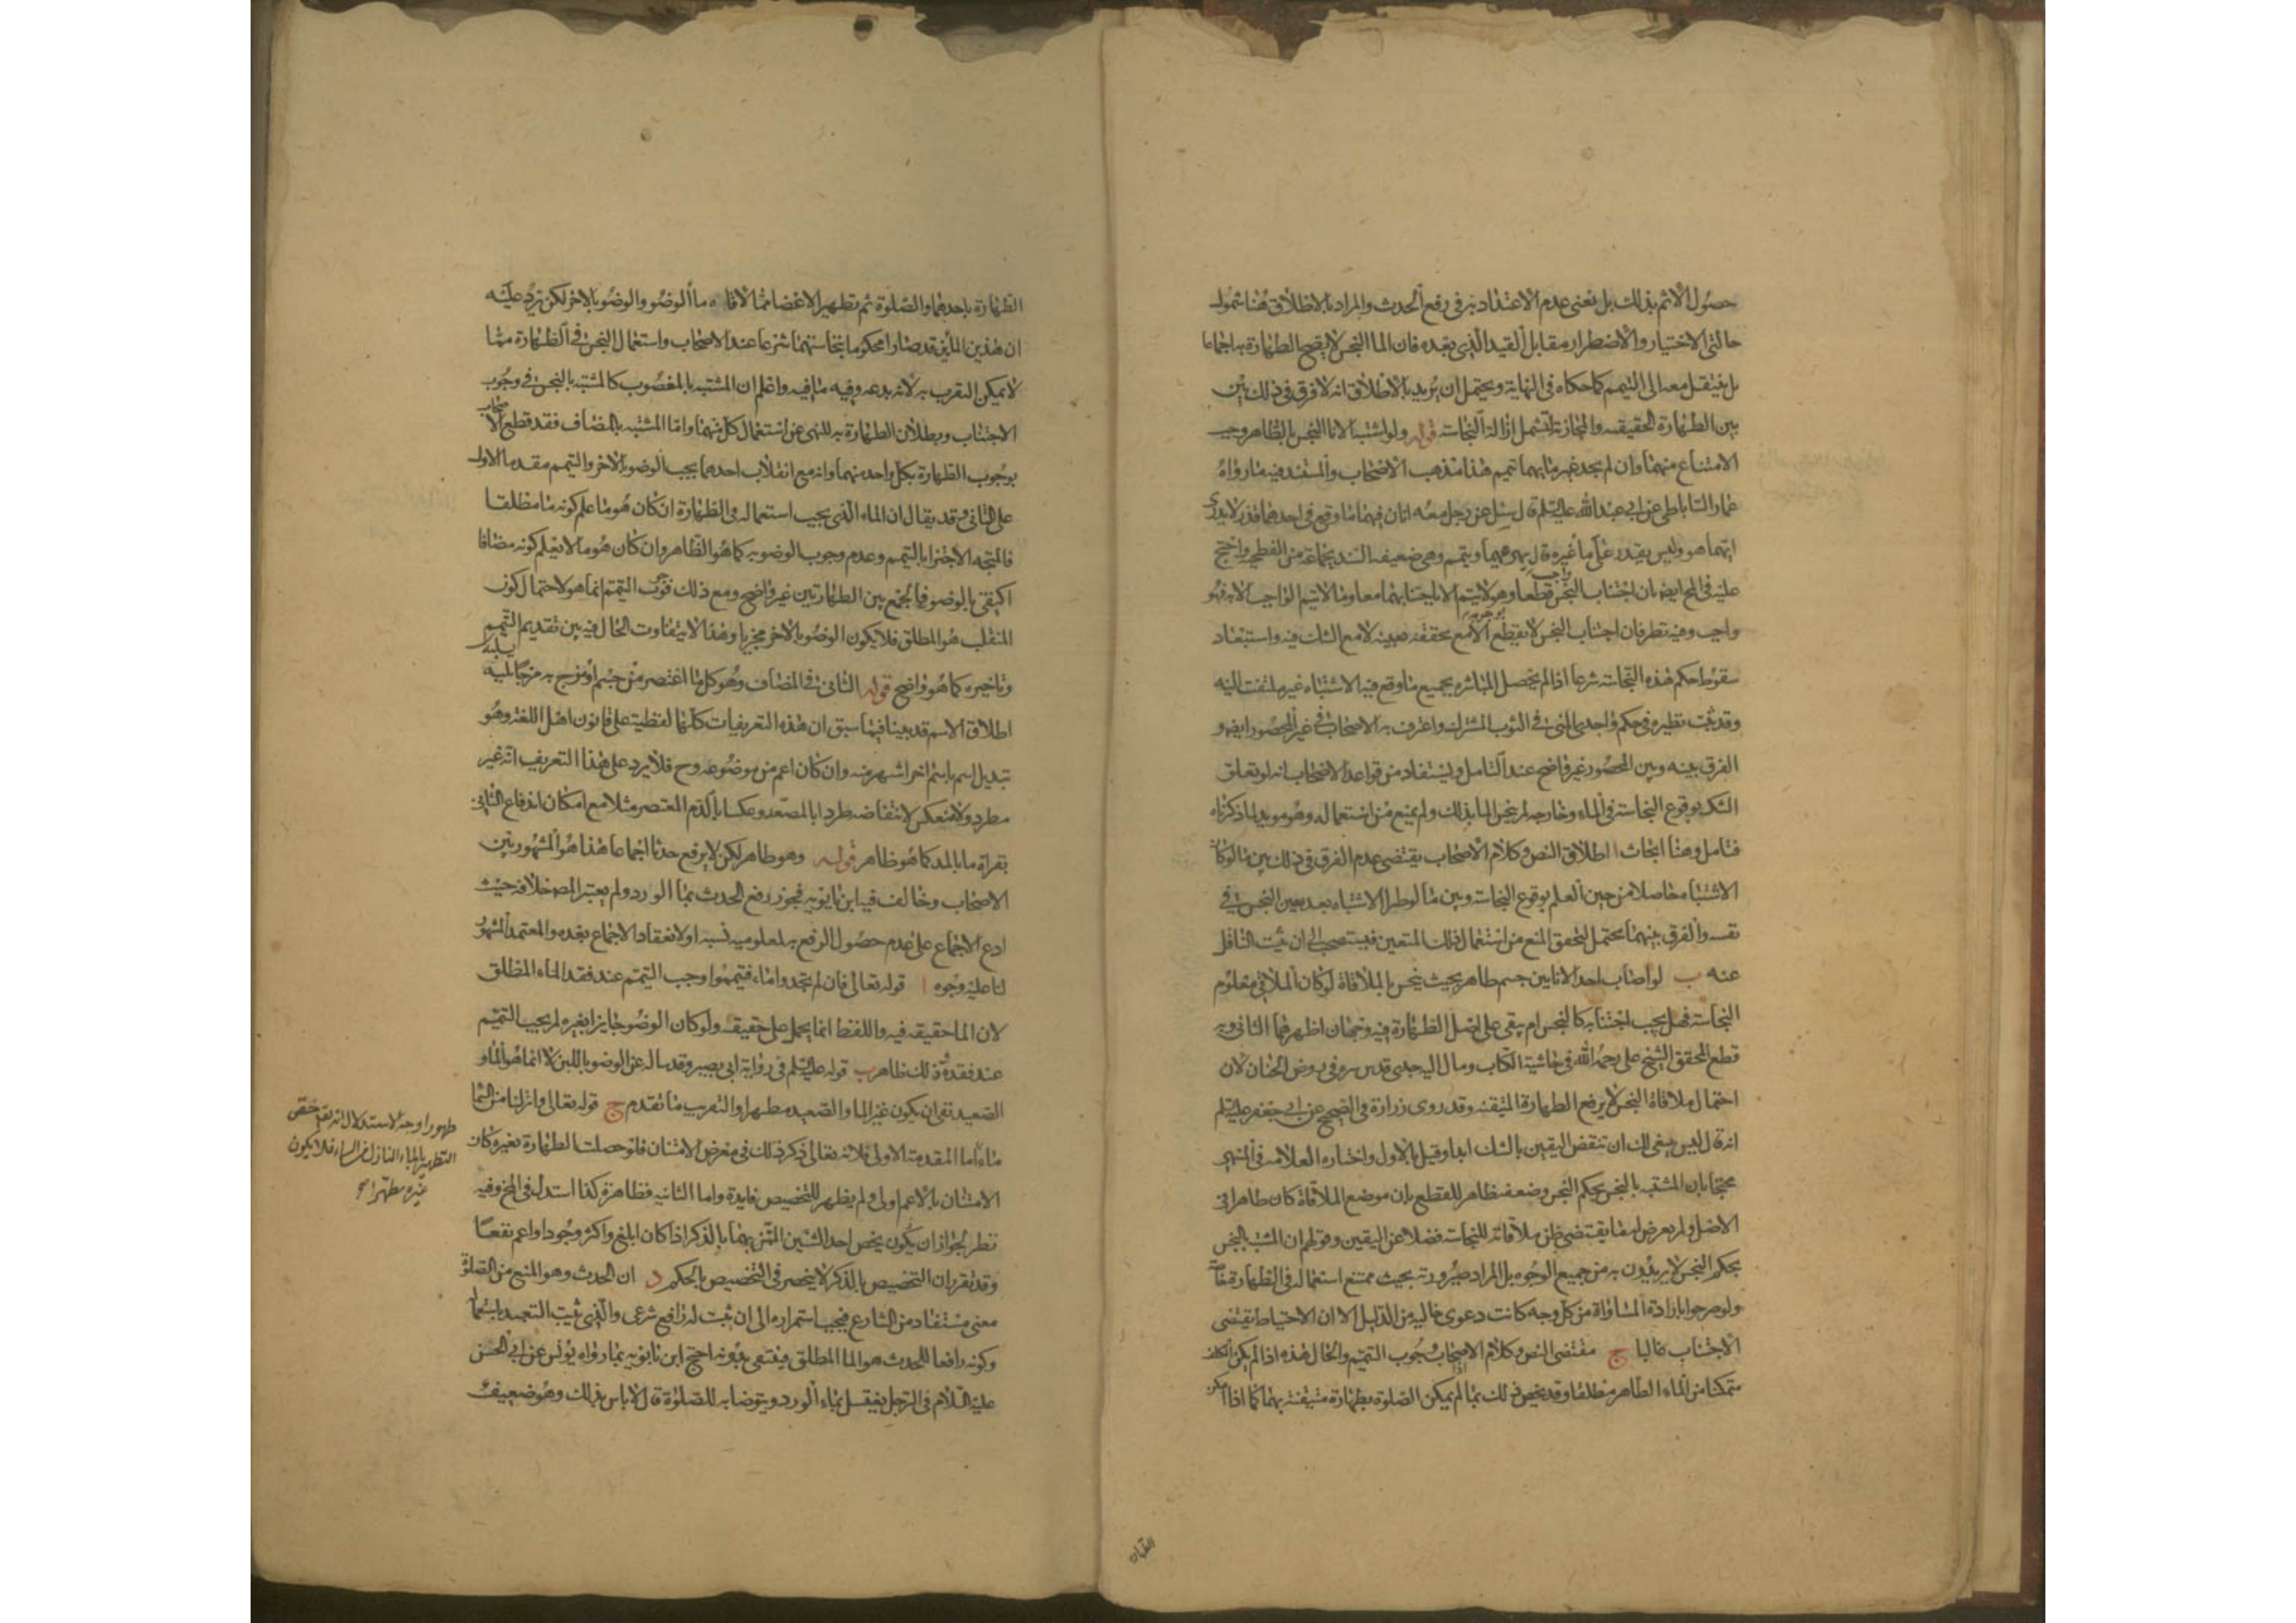 حصول الاثم بذلك بل نعنى عدم الاعتداد به فى رفع الحدث والمراد بالاطلاق هنا شمول
حالتى الاختيار والاضطرار مقابل القيد الذى بعده فان الما النجس لا يصح الطهارة به اجماعا
بل ينتقل معه الى التيمم كما حكاه فى النهاية ويحتمل ان يريد بالاطلاق انه لا فرق فى ذلك بين
بين الطهارة الحقيقيه والمجازية لتشمل ازالة النجاسة قوله ولو اشتبه الانا النجس بالطاهر وجب
الامتناع منهما وان لم يجد غير مايهما تيمم هذا مذهب الاصحاب والمستند فيه ما رواه
عمار الساباطى عن ابى عبد الله عليه السلم قال سئل عن رجل معه اناان فيهما ما وقع فى احدهما قذر لا يدرى
ايهما هو وليس يقدر على ما غيره قال يهرقهما ويتيمم وهى ضعيفة السند بجماعة من الفطحية واحتج
عليه فى المخ ايض بان اجتناب النجس واجب قطعا وهو لا يتم الا باجتنابهما معا وما لا يتم الواجب الا به فهو
واجب وفيه نظر فان اجتناب النجس لا يقطع بوجوبه الا مع تحققه بعينه لا مع الشك فيه واستبعاد
سقوط حكم هذه النجاسة شرعا اذا لم يحصل المباشرة بجميع ما وقع فيه الاشتباه غير ملتفت اليه
وقد ثبت نظيره فى حكم واجدى المنى فى الثوب المشترك واعترف به الاصحاب فى غير المحصور ايض و
الفرق بينه وبين المحصور غير واضح عند التامل ويستفاد من قواعد الاصحاب انه لو تعلق
الشك بوقوع النجاسة فى الماء وخارجه لم ينجس الما بذلك ولم يمنع من استعماله وهو مويد لما ذكرناه
فتامل وهنا ابحاث ا اطلاق النص وكلام الاصحاب يقتضى عدم الفرق فى ذلك بين ما لو كان
الاشتباه حاصلا من حين العلم بوقوع النجاسة وبين ما لو طرا الاشتباه بعد تعين النجس فى
نفسه والفرق بينهما محتمل لتحقق المنع من استعمال ذلك المتعين فيستصحب الى ان يثبت الناقل
عنه ب لو اصاب احد الانايين جسم طاهر بحيث ينجس بالملاقاة لو كان الملاقى معلوم
النجاسة فهل يجب اجتنابه كالنجس ام يبقى على اصل الطهارة فيه وجهان اظهرهما الثانى وبه
قطع المحقق الشيخ على رحمه الله فى حاشية الكتاب ومال اليه جدى قدس سره فى روض الجنان لان
احتمال ملاقاة النجس لا يرفع الطهارة المتيقنة وقد روى زرارة فى الصحيح عن ابى جعفر عليه السلم
انه قال ليس ينبغى لك ان تنقض اليقين بالشك ابدا وقيل بالاول واختاره العلامة فى المنتهى
محتجا بان المشتبه بالنجس بحكم النجس وضعفه ظاهر للقطع بان موضع الملاقاة كان طاهرا فى
الاصل ولم يعرض له ما يقتضى ظن ملاقاته للنجاسة فضلا عن اليقين وقولهم ان المشتبه بالنجس
بحكم النجس لا يريدون به من جميع الوجوه بل المراد صيرورته بحيث ممتنع استعماله فى الطهارة خاصة
ولو صرحوا بارادة المساواة من كل وجه كانت دعوى خالية من الدليل الا ان الاحتياط يقتضى
الاجتناب غالبا ج مقتضى النص وكلام الاصحاب وجوب التيمم والحال هذه اذا لم يكن المكلف
متمكنا من الماء الطاهر مطلقا وقد يخص ذلك بما اذا لم يمكن الصلوة بطهارة متيقنة بهما كما اذا امكن
الطهارة
الطهارة باحدهما والصلوة ثم تطهير الاعضا مما لاقاه ما الوضوء والوضو بالاخر لكن يرد عليه
ان هذين المائين قد صارا محكوما بنجاستهما شرعا عند الاصحاب واستعمال النجس فى الطهارة مما
لا يمكن التقرب به لانه بدعه وفيه ما فيه واعلم ان المشتبه بالمغصوب كالمشتبه بالنجس فى وجوب
الاجتناب وبطلان الطهارة به للنهى عن استعمال كل منهما واما المشتبه بالمضاف فقد قطع الاصحاب
بوجوب الطهارة بكل واحد منهما وانه مع انقلاب احدهما يجب الوضو بالاخر والتيمم مقدما الاول
على الثانى وقد يقال ان الماء الذى يجب استعماله فى الطهارة ان كان هو ما علم كونه ما مطلقا
فالمتجه الاجتزا بالتيمم وعدم وجوب الوضو به كما هو الظاهر وان كان هو ما لا يعلم كونه مضافا
اكتفى بالوضو فالجمع بين الطهارتين غير واضح ومع ذلك فوجوب التيمم انما هو لاحتمال كون
المنقلب هو المطلق فلا يكون الوضو بالاخر مجزيا وهذا لا يتفاوت الحال فيه بين تقديم التيمم
وتاخيره كما هو واضح قوله الثانى فى المضاف وهو كل ما اعتصر من جسم او مزج به مزجا يسلبه
اطلاق الاسم قد بينا فيما سبق ان هذه التعريفات كلها لفظية على قانون اهل اللغة وهو
تبديل اسم باسم اخر اشهر منه وان كان اعم من موضوعه وح فلا يرد على هذا التعريف انه غير
مطرد ولا منعكس لانتقاضه طردا بالمصعد وعكسا بالدم المعتصر مثلا مع امكان اندفاع الثانى
بقراة ما بالمد كما هو ظاهر قوله وهو طاهر لكن لا يرفع حدثا اجماعا هذا هو المشهور بين
الاصحاب وخالف فيه ابن بابويه فجوز رفع الحدث بما الورد ولم يعتبر المص خلافه حيث
ادع الاجماع على عدم حصول الرفع به لمعلومية نسبه او لانعقاد الاجماع بعده والمعتمد المشهور
لنا عليه وجوه ا قوله تعالى فان لم تجدوا ماء فتيمموا وجب التيمم عند فقد الماء المطلق
لان الما حقيقة فيه واللفظ انما يحمل على حقيقته ولو كان الوضو جايزا بغيره لم يجب التيمم
عند فقده وذلك ظاهر ب قوله عليه السلم فى رواية ابى بصير وقد ساله عن الوضو باللبن لا انما هو الما و
الصعيد نفى ان يكون غير الما والصعيد مطهرا والتقريب ما تقدم ج قوله تعالى وانزلنا من السما
ماء اما المقدمة الاولى فلانه تعالى ذكر ذلك فى معرض الامتنان فلو حصلت الطهارة بغيره كان
الامتنان بالاعم اولى ولم يظهر للتخصيص فايدة واما الثانيه فظاهرة كذا استدل فى المخ وفيه
نظر لجواز ان يكون يخص احد الشيئين الممتن بهما بالذكر اذا كان ابلغ واكثر وجودا واعم نفعا
وقد تقرر ان التخصيص بالذكر لا ينحصر فى التخصيص بالحكم د ان الحدث وهو المنع من الصلوة
معنى مستفاد من الشارع فيجب استمراره الى ان يثبت له رافع شرعى والذى ثبت التعبد باستعماله
وكونه رافعا للحدث هو الما المطلق فينتفى بدونه احتج ابن بابويه بما رواه يونس عن ابى الحسن
عليه السلام فى الرجل يغتسل بماء الورد ويتوضا به للصلوة قال لا باس بذلك وهو ضعيف
طهورا وجه الاستدلال انه تع خص
التطهير بالماء النازل من السماء فلا يكون
غيره مطهرا